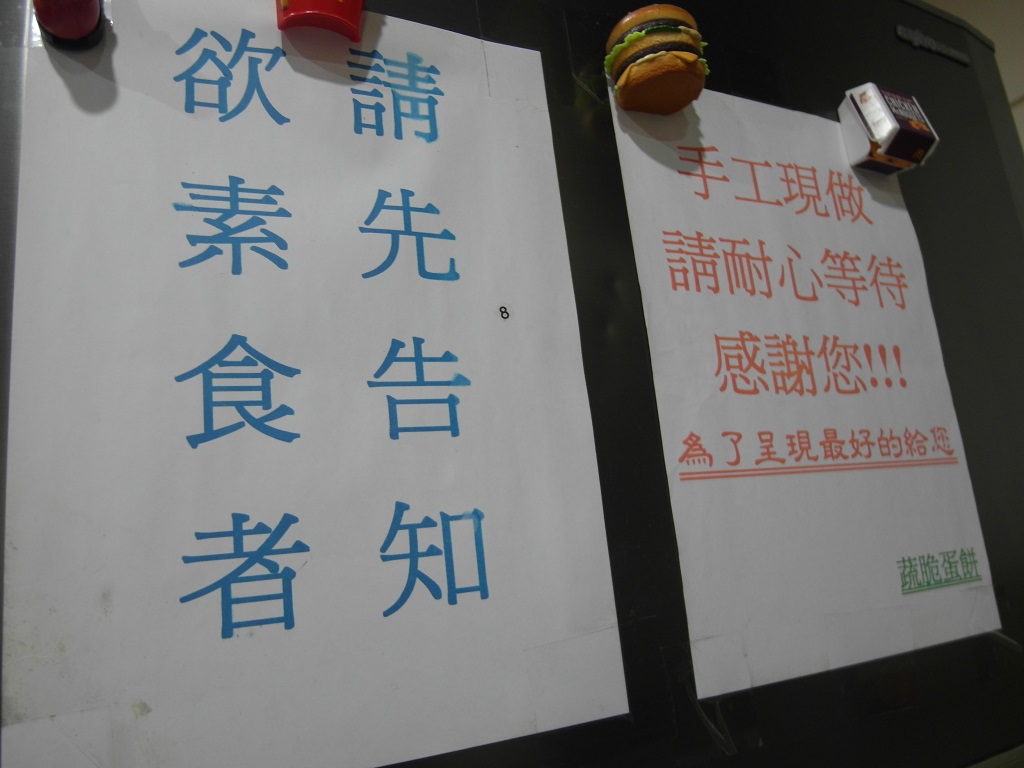 欲素食者
請先告知
8
手工現做
請耐心等待
感謝您!!!
為了呈現最好的給您
蔬脆蛋餅